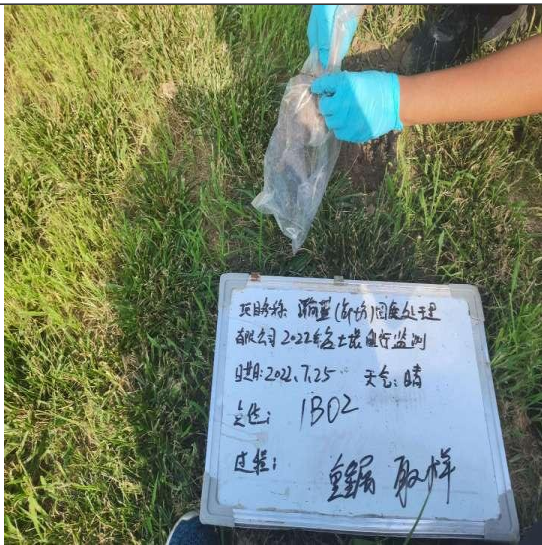 项目名称: 瀚蓝(廊坊)固废处理
有限公司2022年度土壤自行监测
日期:2022.7.25 天气:晴
点位: 1B02
过程:
重金属 取样